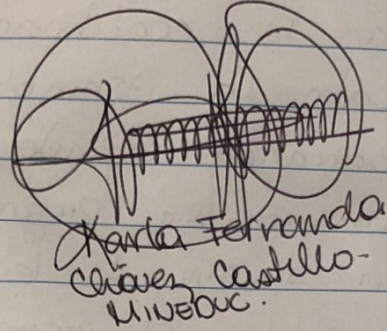 Karla Fernanda
Chávez Castillo-
MINEDUC.